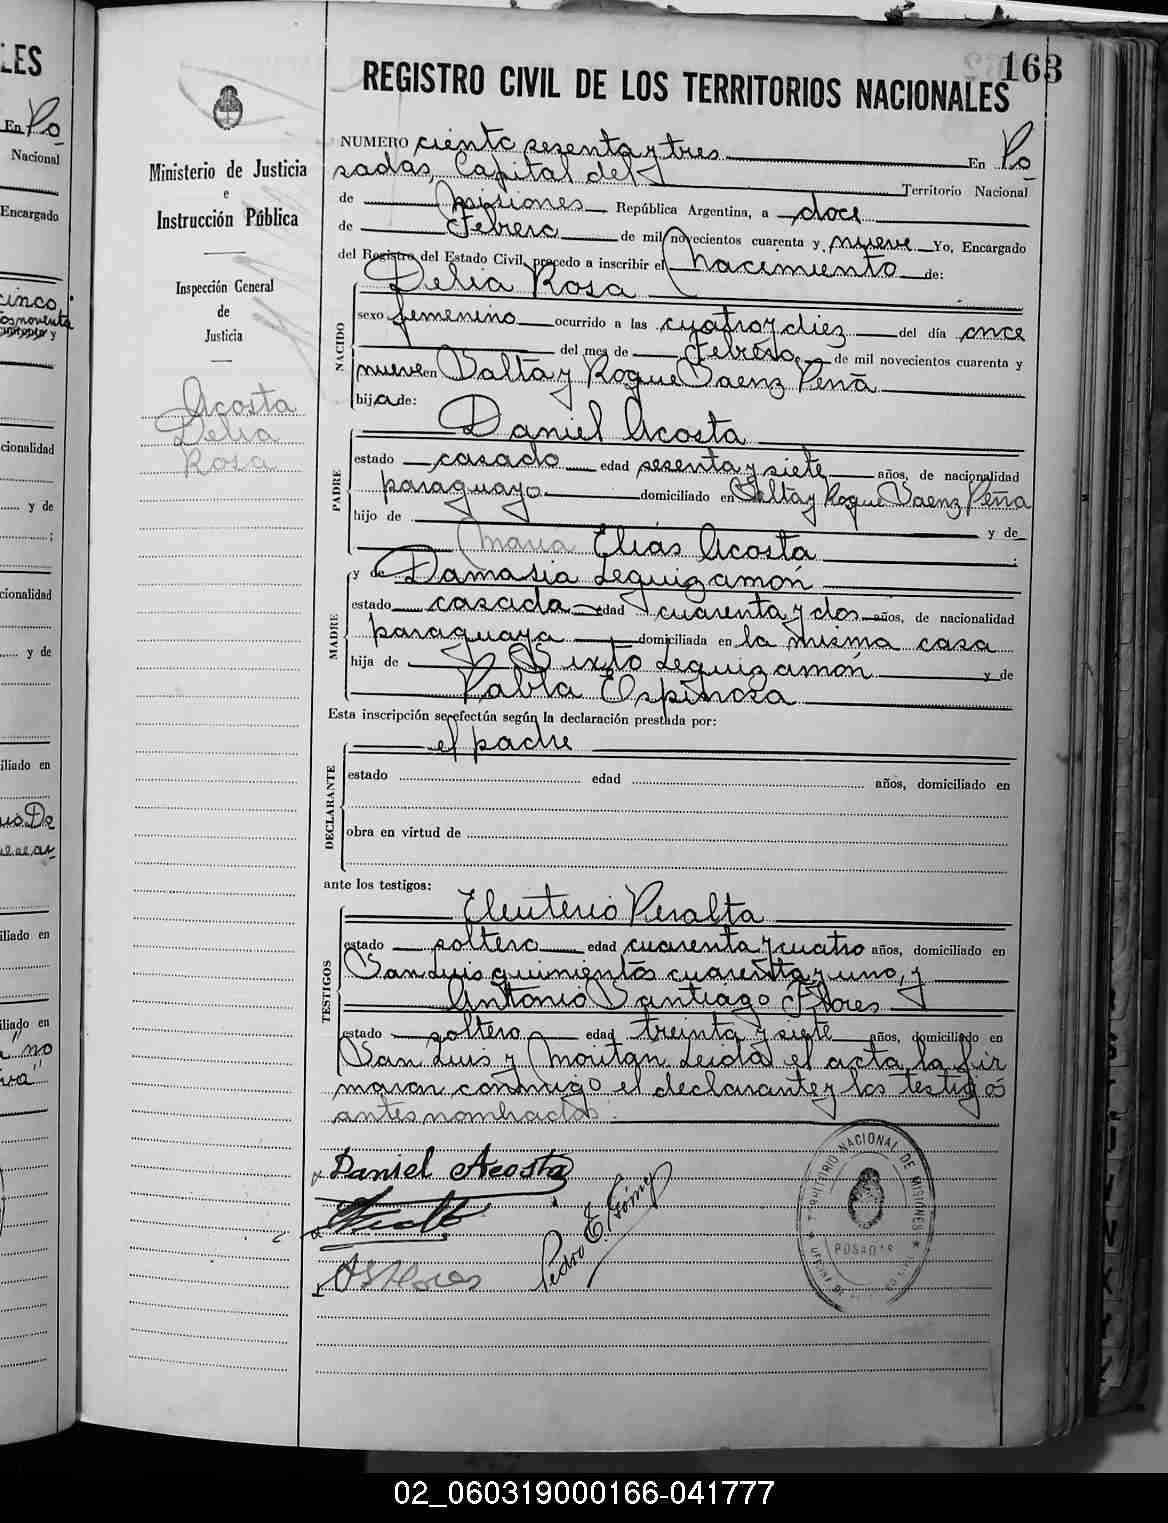 163
REGISTRO CIVIL DE LOS TERRITORIOS NACIONALES
Ministerio de Justicia
e
Instrucción Pública
Inspección General
de
Justicia
Acosta
Delia
Rosa
NUMERO ciento sesenta y tres En Po
sadas, Capital del Territorio Nacional
de Misiones República Argentina, a doce
de Febrero de mil novecientos cuarenta y nueve Yo, Encargado
del Registro del Estado Civil, procedo a inscribir el Nacimiento de:
Delia Rosa
NACIDO
sexo femenino ocurrido a las cuatro y diez del día once
del mes de Febrero de mil novecientos cuarenta y
nueve en Salta y Roque Saenz Peña
hija de:
Daniel Acosta
PADRE
estado casado edad sesenta y siete años, de nacionalidad
paraguayo domiciliado en Salta y Roque Saenz Peña
hijo de y de
Maria Elias Acosta ;
y de Damasia Leguizamón
MADRE
estado casada edad cuarenta y dos años, de nacionalidad
paraguaya domiciliada en la misma casa
hija de Sixto Leguizamón y de
Pabla Espinosa
Esta inscripción se efectúa según la declaración prestada por:
el padre
DECLARANTE
estado edad años, domiciliado en
obra en virtud de
ante los testigos:
Eleuterio Peralta
TESTIGOS
estado soltero edad cuarenta y cuatro años, domiciliado en
San Luis quinientos cuarenta y uno, y
Antonio Santiago Flores
estado soltero edad treinta y siete años, domiciliado en
San Luis y Moritan Leida el acta la fir
maron conmigo el declarante y los testigos
antes nombrados.
Daniel Acosta
Pedro E. Gómez
A S Flores
TERRITORIO NACIONAL DE MISIONES
POSADAS
02_060319000166-041777